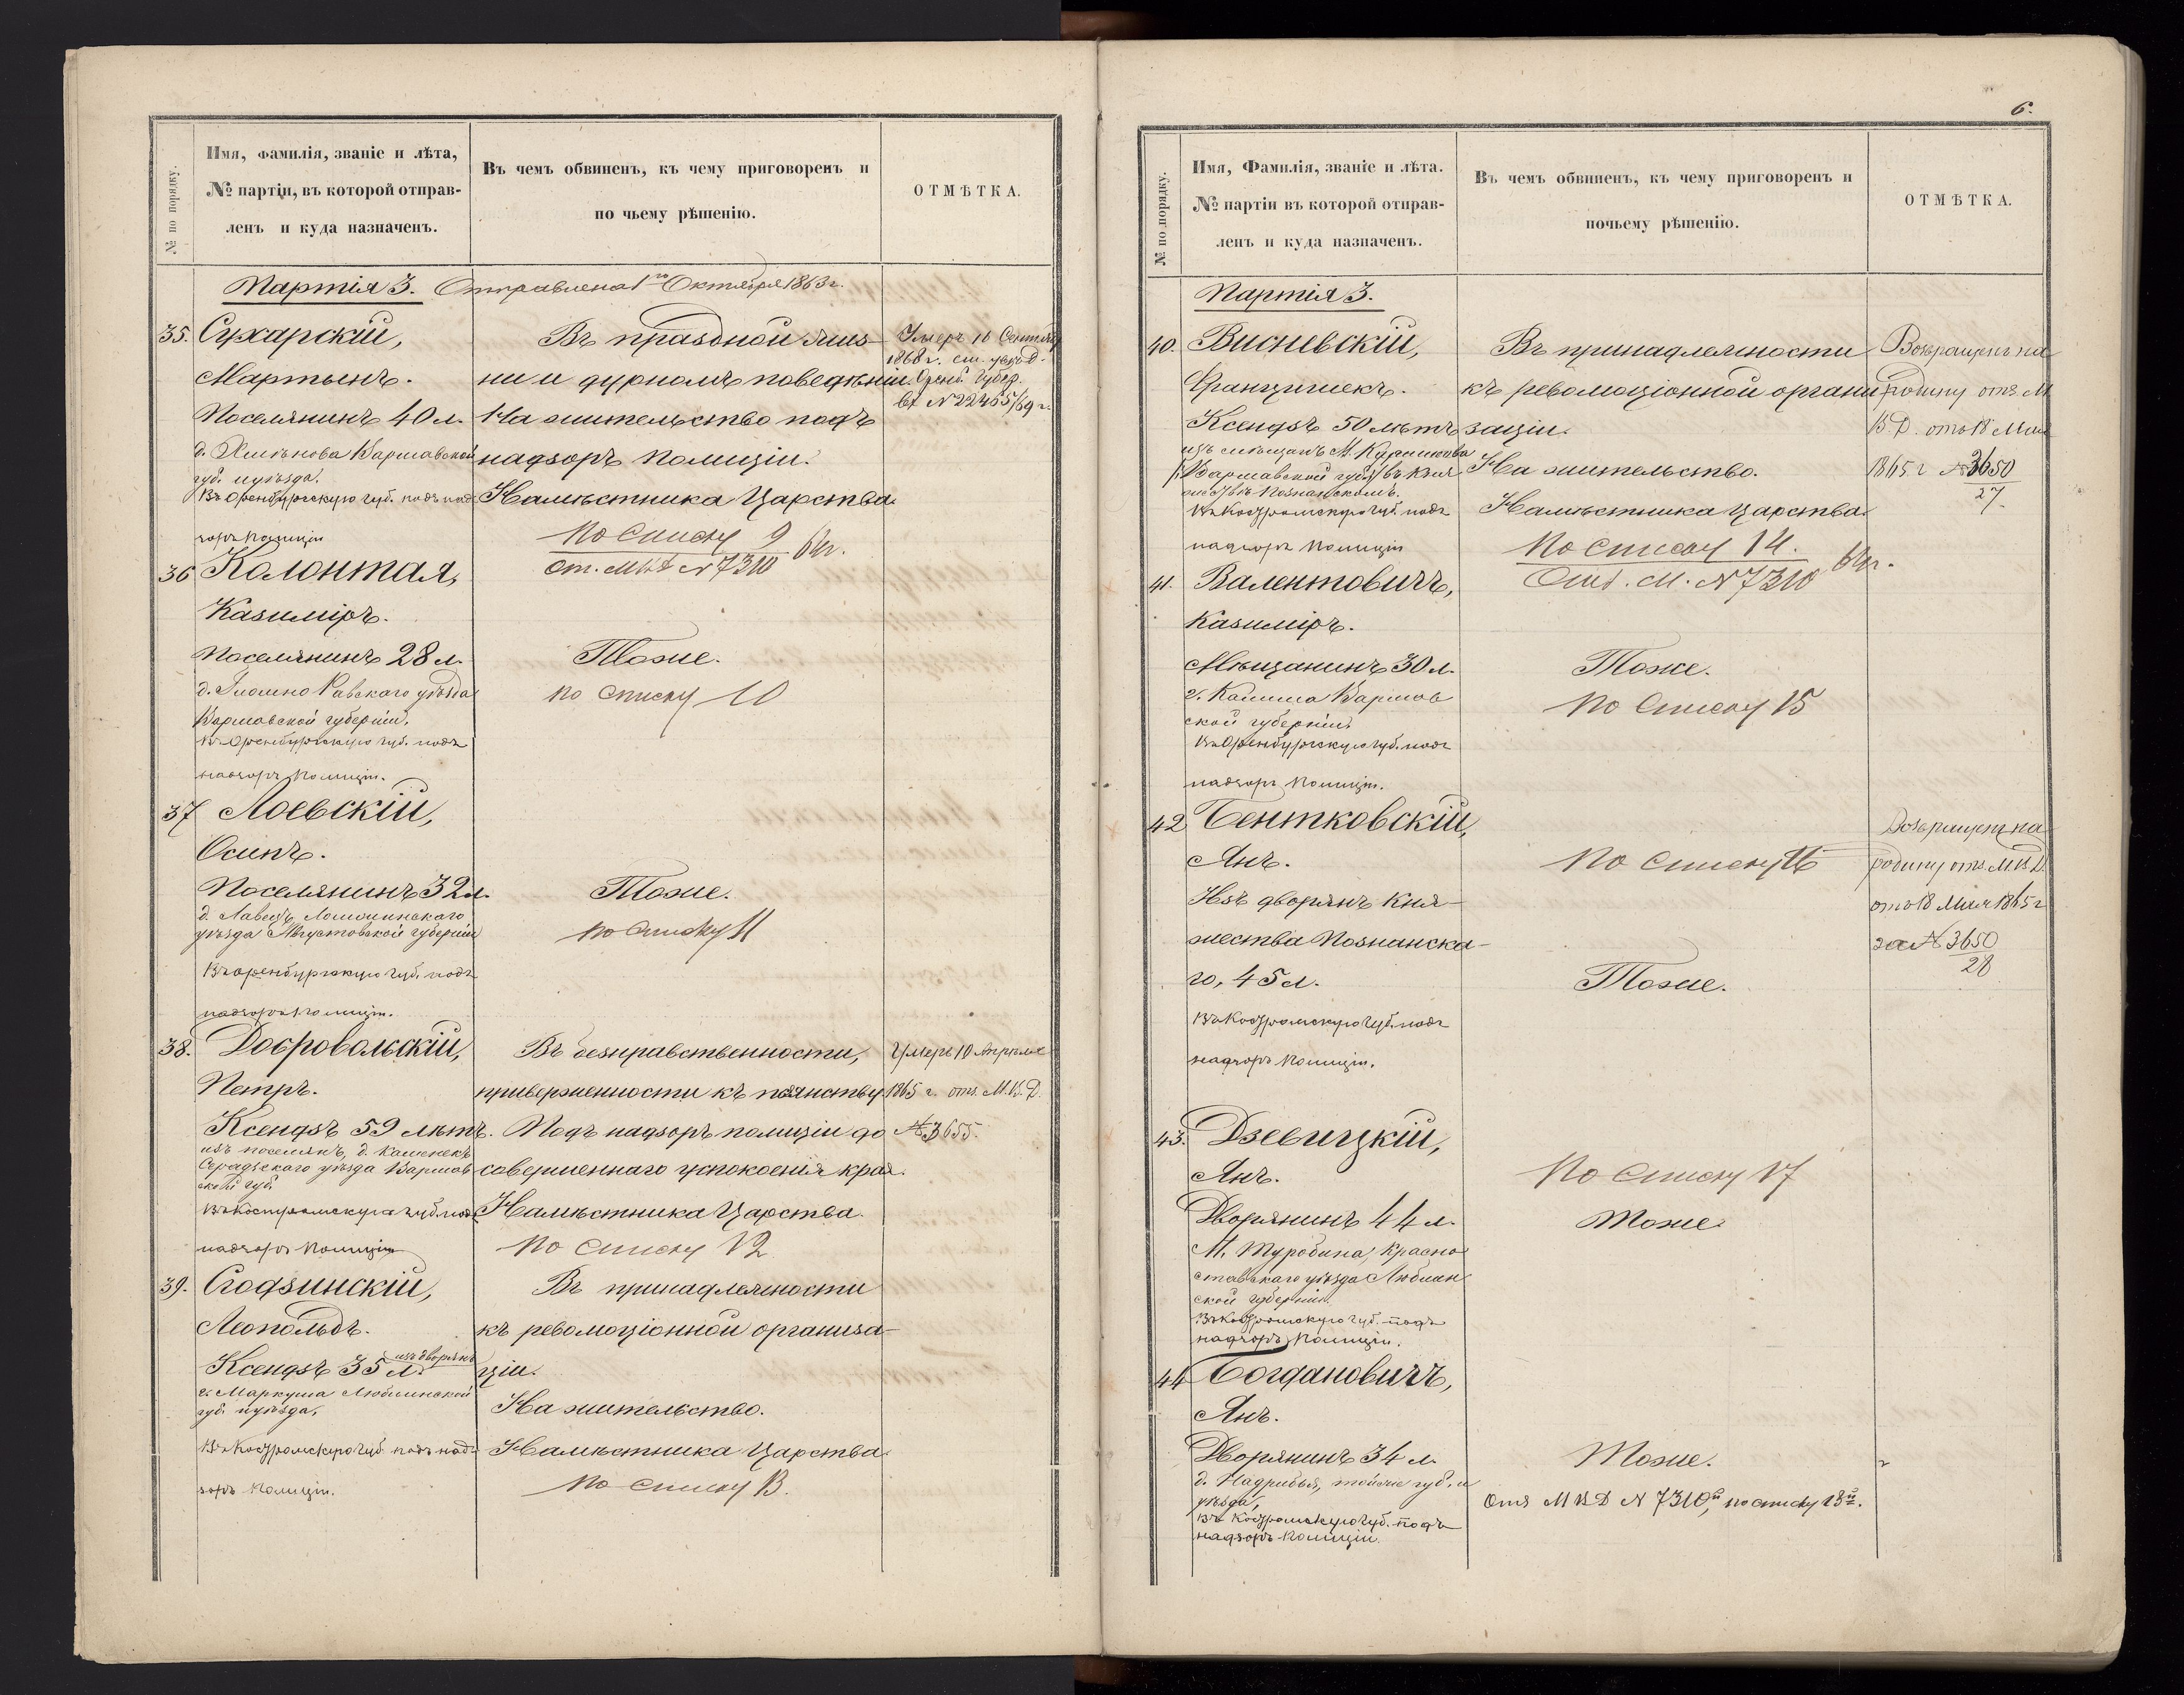 № по порядку.
Имя, фамилія, званіе и лѣта,
№ партіи, въ которой отправ-
ленъ и куда назначенъ.
Въ чемъ обвиненъ, къ чему приговоренъ и
по чьему рѣшенію.
ОТМѢТКА.
Партія 3. Отправлена 1го Октября 1863 г.
35. Сухарскій,
Мартынъ.
Поселянинъ 40 л.
Варшавской
губ. и уѣзда.
Въ Оренбургскую губ. подъ над
зоръ Полиціи
Въ праздной жиз-
ни и дурномъ поведеніи.
На жительство подъ
надзоръ полиціи.
Намѣстника Царства.
По списку 9
От. МВД № 7310 64 г.
Умеръ 16 Сентября
1868 г.
Оренб. Губер.
вх № 22465/69 г.
36 Колонтая,
Казиміръ.
Поселянинъ 28 л.
Равскаго уѣзда
Варшавской губерніи,
въ Оренбургскую губ. подъ
надзоръ Полиціи.
Тоже.
по списку 10
37 Лоевскій,
Осипъ.
Поселянинъ 32 л.
уѣзда Августовской губерніи
Въ Оренбургскую губ. подъ
надзоръ Полиціи.
Тоже.
по списку 11
38. Добровольскій,
Петръ.
Ксендзъ 59 лѣтъ.
изъ поселянъ, д.
Серадзскаго уѣзда Варшав
ской губ.
Въ Костромскую губ. под
надзоръ Полиціи
Въ безнравственности,
приверженности къ пьянству.
Подъ надзоръ полиціи до
совершеннаго успокоенія края.
Намѣстника Царства.
По списку 12
Умеръ 10 Апрѣля
1865 г. отз. М.В.Д.
№ 3655.
39. Стодзинскій,
Леопольдъ.
изъ дворянъ
Ксендзъ 35 л.
Люблинской
губ. и уѣзда,
Въ Костромскую губ. подъ над
зоръ Полиціи.
Въ принадлежности
къ революціонной организа-
ціи.
На жительство.
Намѣстника Царства.
По списку 13.
6.
№ по порядку.
Имя, Фамилія, званіе и лѣта.
№ партіи въ которой отправ-
ленъ и куда назначенъ.
Въ чемъ обвиненъ, къ чему приговоренъ и
почьему рѣшенію.
ОТМѢТКА.
Партія 3.
40. Висневскій,
Францишекъ.
Ксендзъ 50 лѣтъ
изъ мѣщанъ М.
Варшавской губ.
Познанскомъ.
Въ Костромскую губ. подъ
надзоръ Полиціи
Въ принадлежности
къ революціонной органи
заціи.
На жительство.
Намѣстника Царства.
По списку 14.
Отз. М. № 7310 64 г.
Возвращенъ на
родину отз. М
В.Д. отъ 18 Мая
1865 г № 3650
27
41. Валентовичъ,
Казиміръ.
Мѣщанинъ 30 л.
г. Калиша Варшав
ской губерніи,
Въ Оренбургскую губ. подъ
надзоръ Полиціи.
Тоже.
По списку 15
42 Бентковскій,
Янъ.
Изъ дворянъ Кня-
жества Познанска-
го, 45 л.
Въ Костромскую губ. подъ
надзоръ Полиціи.
По списку 16
Тоже.
Возвращенъ на
родину отз. М.В.Д.
отъ 18 Мая 1865 г
за № 3650
28
43. Дзевицкій,
Янъ.
Дворянинъ 44 л.
М. Туробина, Красно
ставскаго уѣзда Люблин
ской губерніи.
Въ Костромскую губ. подъ
надзоръ Полиціи.
По списку 17
Тоже.
44 Богдановичъ,
Янъ.
Дворянинъ 34 л.
д. Надрибья, той же губ. и
уѣзда,
Въ Костромскую губ. подъ
надзоръ Полиціи.
Тоже.
Отз МВД № 7310, по списку 18й.